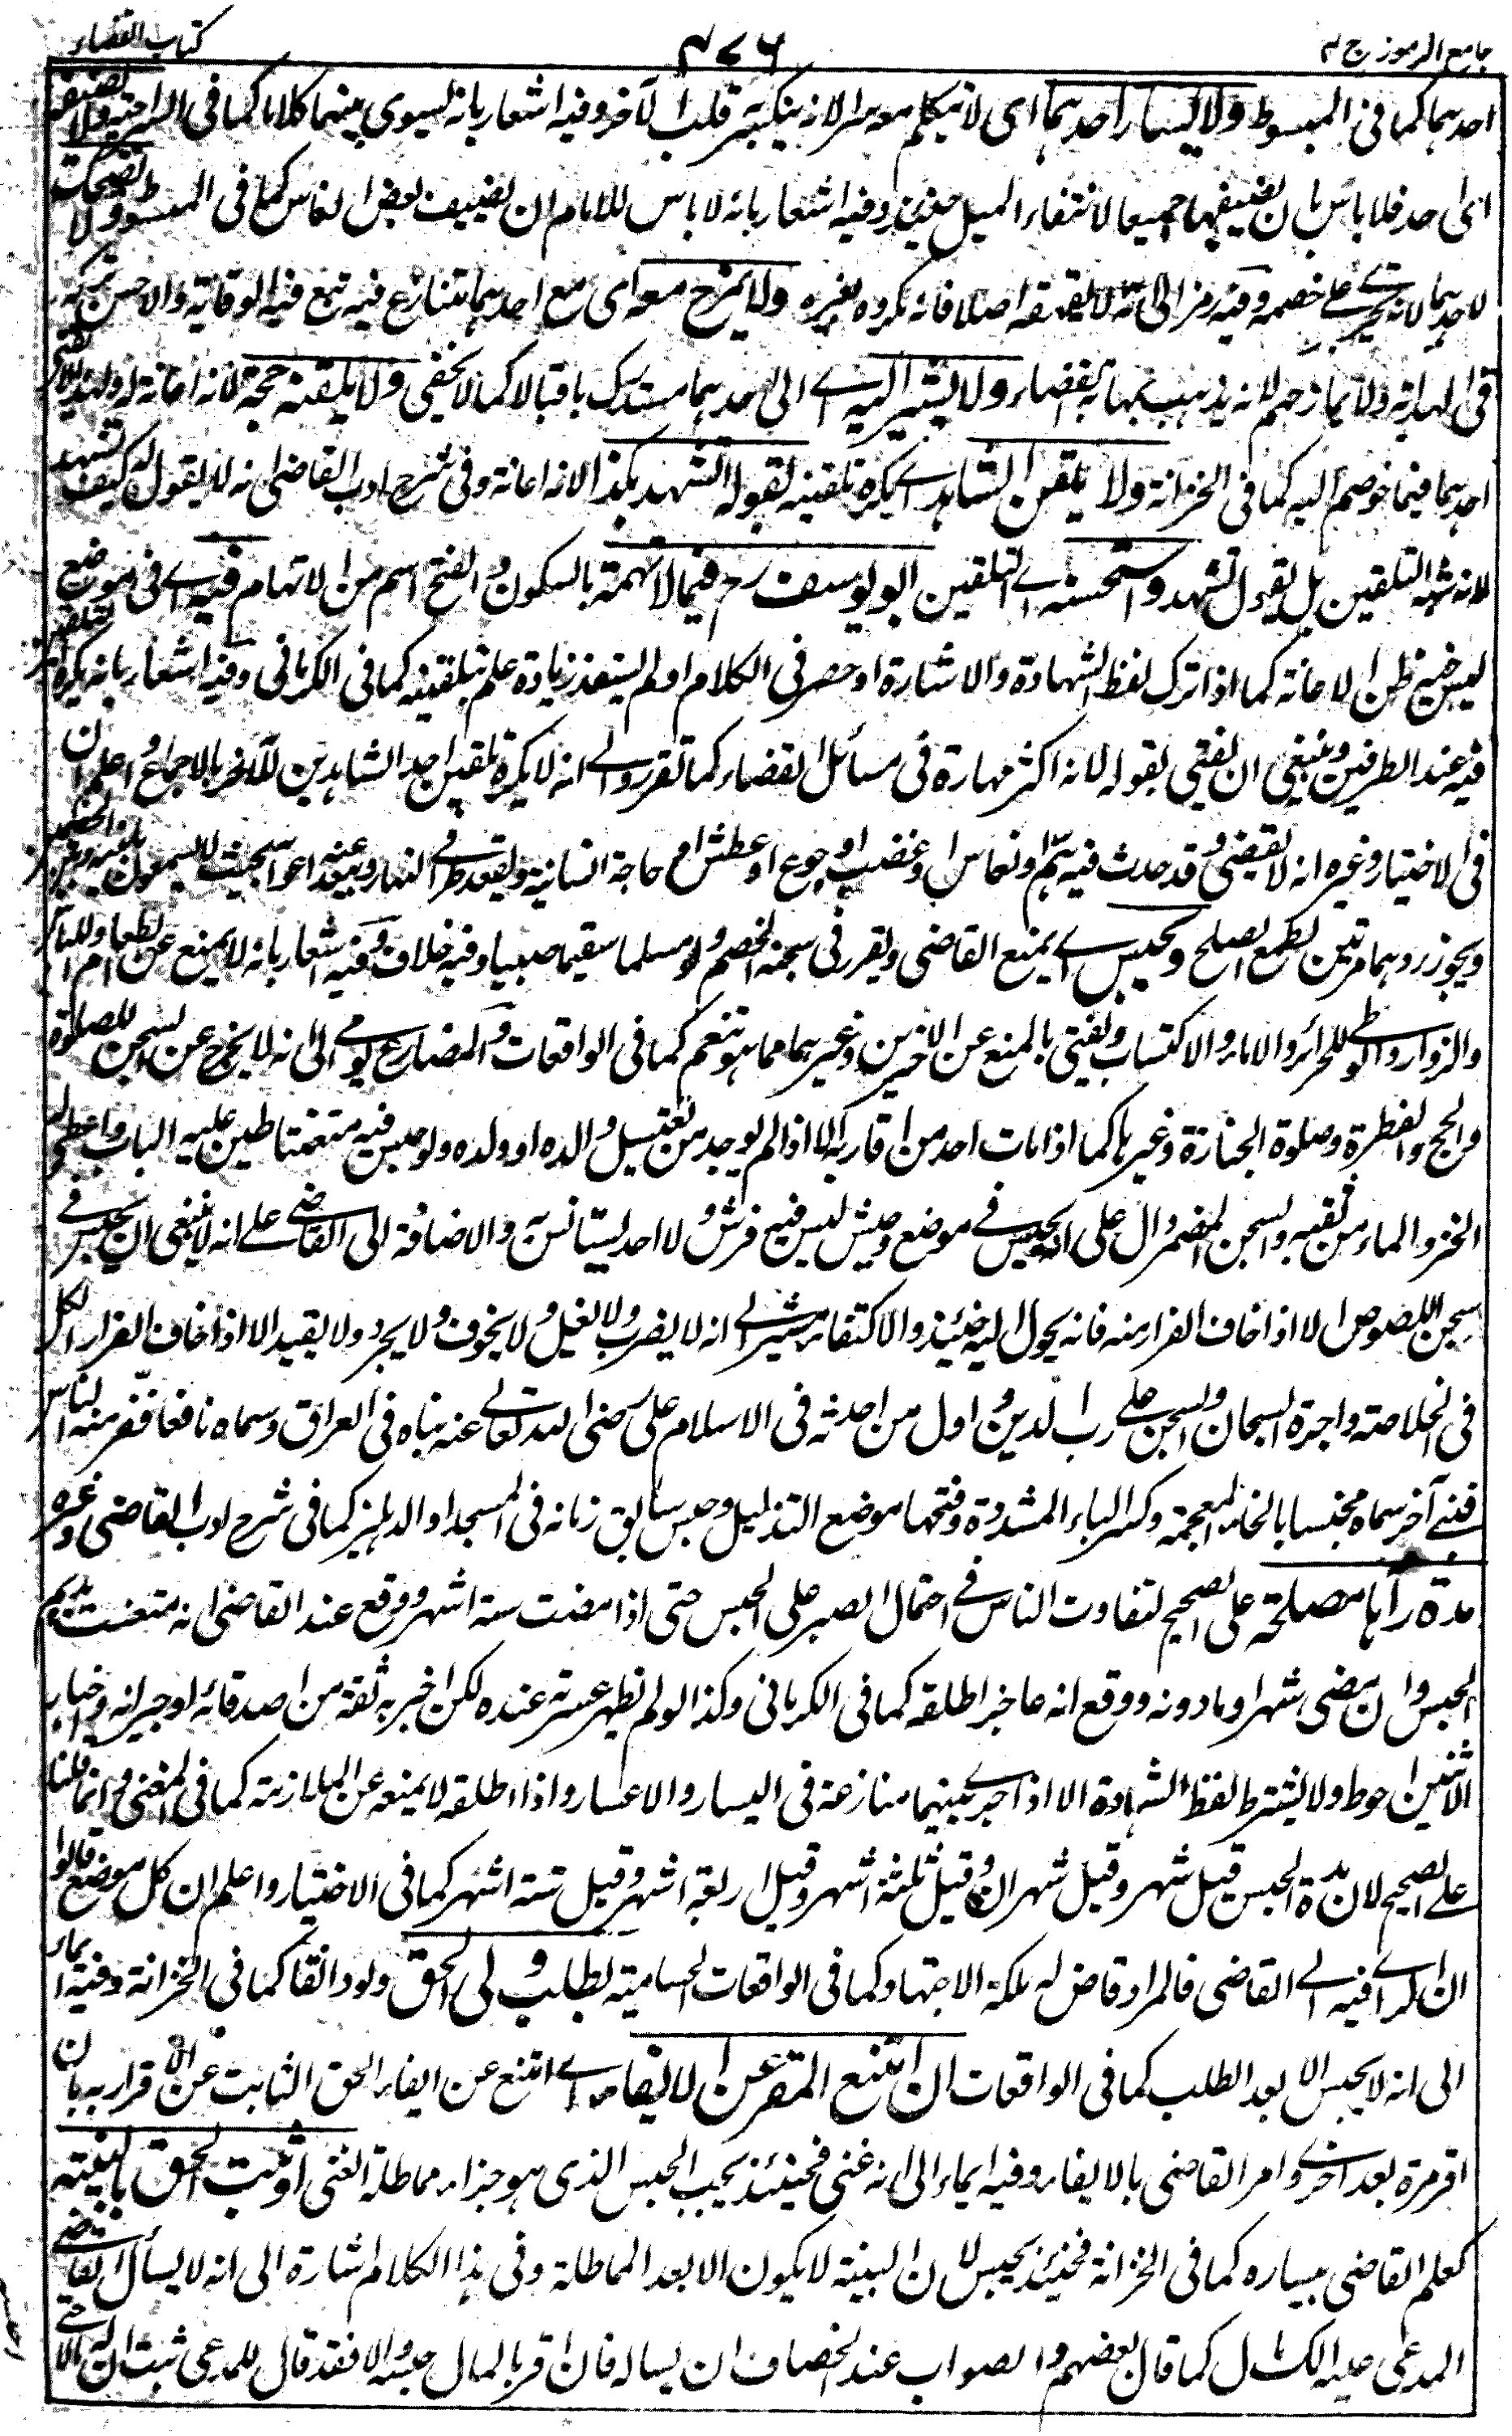 جامع الرموز ج ٢
٤٧٦
كتاب القضاء
احدهما كما فى المبسوط ولا يسار احدهما اى لا يتكلم معه سرا لانه ينكسر به قلب الآخر وفيه اشعار بانه يسوى بينهما كلاما كما فى السراجية ولا يضيفه
اى احد فلا باس بان يضيفهما جميعا لانتفاء الميل حينئذ وفيه اشعار بانه لا باس للامام ان يضيف بعض الناس كما فى المبسوط ولا يضحك
لاحدهما لانه يجترئ على خصمه وفيه رمز الى انه لا يقهقه اصلا فانه مكروه لغيره ولا يمزح معه اى مع احدهما يتنازع فيه تبع فيه الوقاية والاحسن تركه
فى الهداية ولا يمازحهم لانه يذهب بمهابة القضاء ولا يشير اليه اى الى احدهما مستدرك باقبالا كما لا يخفى ولا يلقنه حجة لانه اعانة له ولهذا لا يفتى
احدهما فيما خوصم اليه كما فى الخزانة ولا يلقن الشاهد اى يكره تلقينه بقوله اتشهد بكذا لانه اعانة وفى شرح ادب القاضى انه لا يقول له كيف تشهد
لانه شبه التلقين بل يقول اتشهد واستحسنه اى التلقين ابو يوسف رح فيما لا تهمة بالسكون والفتح اسم من الاتهام فيه اى فى موضع
ليس فيه ظن الاعانة كما اذا ترك لفظ الشهادة والاشارة او حصر فى الكلام او لم يستفد زيادة علم بتلقينه كما فى الكرمانى وفيه اشعار بانه يكره التلقين
فيه عند الطرفين وينبغى ان يفتى بقوله لانه اكثر مهارة فى مسائل القضاء كما تقرر والى انه لا يكره تلقين احد الشاهدين للآخر بالاجماع واعلم ان
فى الاختيار وغيره انه لا يقضى وقد حدث فيه هم او نعاس او غضب او جوع او عطش او حاجة انسانية ويقعد طرفى النهار ويبعد عنه اعوانه بحيث لا يسمعون
ويجوز ردهما مرتين لطمع الصلح ويحبس اى يمنع القاضى ويقرر فى سجنه الخصم ولو مسلما سقيما صبيا وفيه خلاف وفيه اشعار بانه لا يمنع عن الطعام
والزوار والوطى للحرائر والاماء والاكتساب ويفتى بالمنع عن الاخيرين وغيرهما مما هو تنعم كما فى الواقعات والمضارع يومى الى انه لا يخرج عن السجن للصلوة
والحج والفطرة وصلوة الجنازة وغيرها كما اذا مات احد من اقاربه الا اذا لم يوجد من يغتسل والده او ولده ولو حبس فيه متعنتا طين عليه الباب واعطى له
الخبز والماء من ثقبه والسجن المضمر دال على انه يحبس فى موضع وحش ليس فيه فرش ولا احد ليستانس به والاضافة الى القاضى على انه لا ينبغى ان يحبس فى
سجن اللصوص الا اذا خاف الفرار منه فانه يحول اليه حينئذ والاكتفاء مشير الى انه لا يضرب ولا يغل ولا يخوف ولا يجرد ولا يقيد الا اذا خاف الفرار الكل
فى الخلاصة واجرة السجان والسجن على رب الدين واول من احدثه فى الاسلام على رضى الله تعالى عنه بناه فى العراق وسماه نافعا ففر منه الناس
فبنى آخر سماه مخيسا بالخاء المعجمة وكسر الياء المشددة وفتحها موضع التذليل وحبس سابق زمانه فى المسجد او الدهليز كما فى شرح ادب القاضى وغيره
مدة رآها مصلحة على الصحيح لتفاوت الناس فى احتمال الصبر على الحبس حتى اذا مضت ستة اشهر ووقع عند القاضى انه متعنت يديم
الحبس وان مضى شهر او ما دونه ووقع انه عاجز اطلقه كما فى الكرمانى وكذا لو لم يظهر عسرته عنده لكن اخبر به ثقة من اصدقائه او جيرانه واخبار
الاثنين احوط ولا يشترط لفظ الشهادة الا اذا جرى بينهما منازعة فى اليسار والاعسار واذا اطلقه لا يمنعه عن الملازمة كما فى المغنى وانما قلنا
على الصحيح لان مدة الحبس قيل شهر وقيل شهران وقيل ثلثة اشهر وقيل اربعة اشهر وقيل ستة اشهر كما فى الاختيار واعلم ان كل موضع قالوا
ان الراى فيه الى القاضى فالمراد قاض له ملكة الاجتهاد كما فى الواقعات الحسامية بطلب ولى الحق ولو دانقا كما فى الخزانة وفيه ايماء
الى انه لا يحبس الا بعد الطلب كما فى الواقعات ان امتنع المقر عن الايفاء اى امتنع عن ايفاء الحق الثابت عن الاقرار به بان
اقر مرة بعد اخرى وامر القاضى بالايفاء وفيه ايماء الى انه غنى فحينئذ يجب الحبس الذى هو جزاء مماطلة الغنى او ثبت الحق بالبينة
كعلم القاضى بيساره كما فى الخزانة فحينئذ يحبس لان البينة لا يكون الا بعد المماطلة وفى هذا الكلام اشارة الى انه لا يسأل القاضى
المدعى عليه الك مال كما قال بعضهم والصواب عند الخصاف ان يساله فان اقر بالمال حبسه والا فقد قال للمدعى ثبت ان له مالا